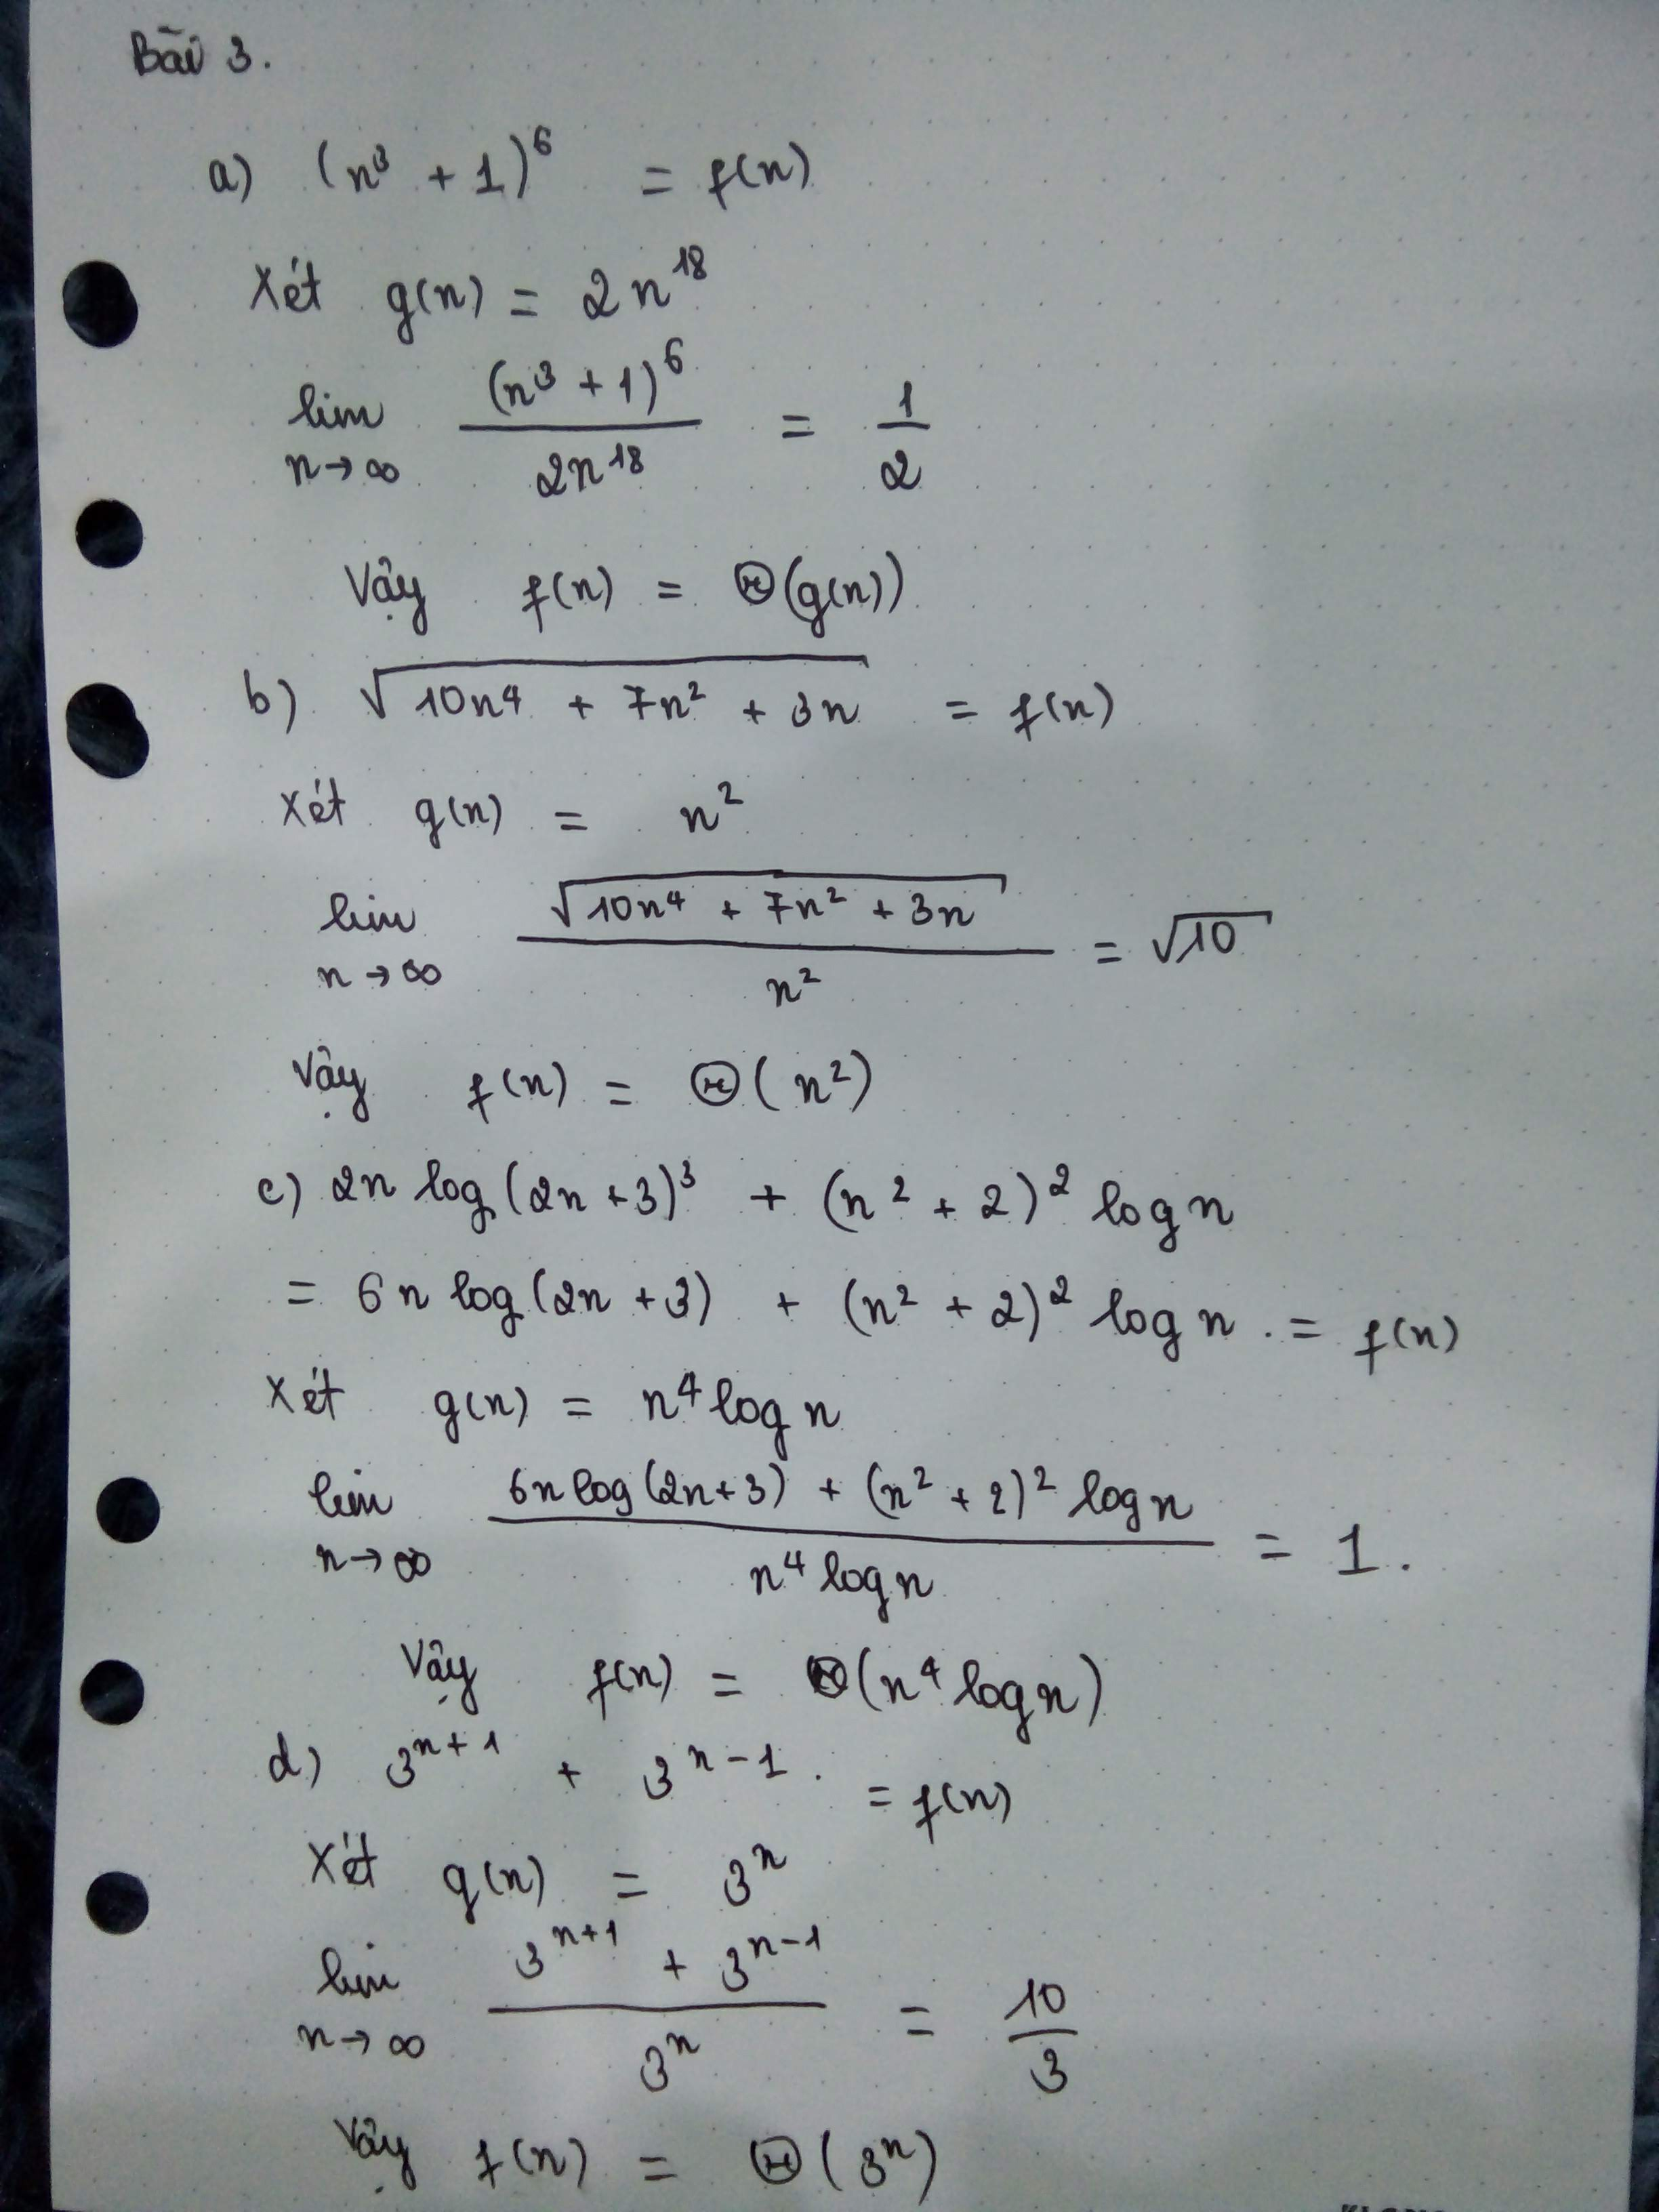 Bài 3.
a) (n³ + 1)⁶ = f(n)
Xét g(n) = 2n¹⁸
lim n→∞ (n³ + 1)⁶ / 2n¹⁸ = 1/2
Vậy f(n) = Θ(g(n))
b) √(10n⁴ + 7n² + 3n) = f(n)
Xét g(n) = n²
lim n→∞ √(10n⁴ + 7n² + 3n) / n² = √10
Vậy f(n) = Θ(n²)
c) 2n log(2n + 3)³ + (n² + 2)² log n
= 6n log(2n + 3) + (n² + 2)² log n . = f(n)
Xét g(n) = n⁴ log n
lim n→∞ 6n log(2n+3) + (n² + 2)² log n / n⁴ log n = 1.
Vậy f(n) = Θ(n⁴ log n)
d) 3ⁿ⁺¹ + 3ⁿ⁻¹ . = f(n)
Xét g(n) = 3ⁿ
lim n→∞ 3ⁿ⁺¹ + 3ⁿ⁻¹ / 3ⁿ = 10/3
Vậy f(n) = Θ(3ⁿ)